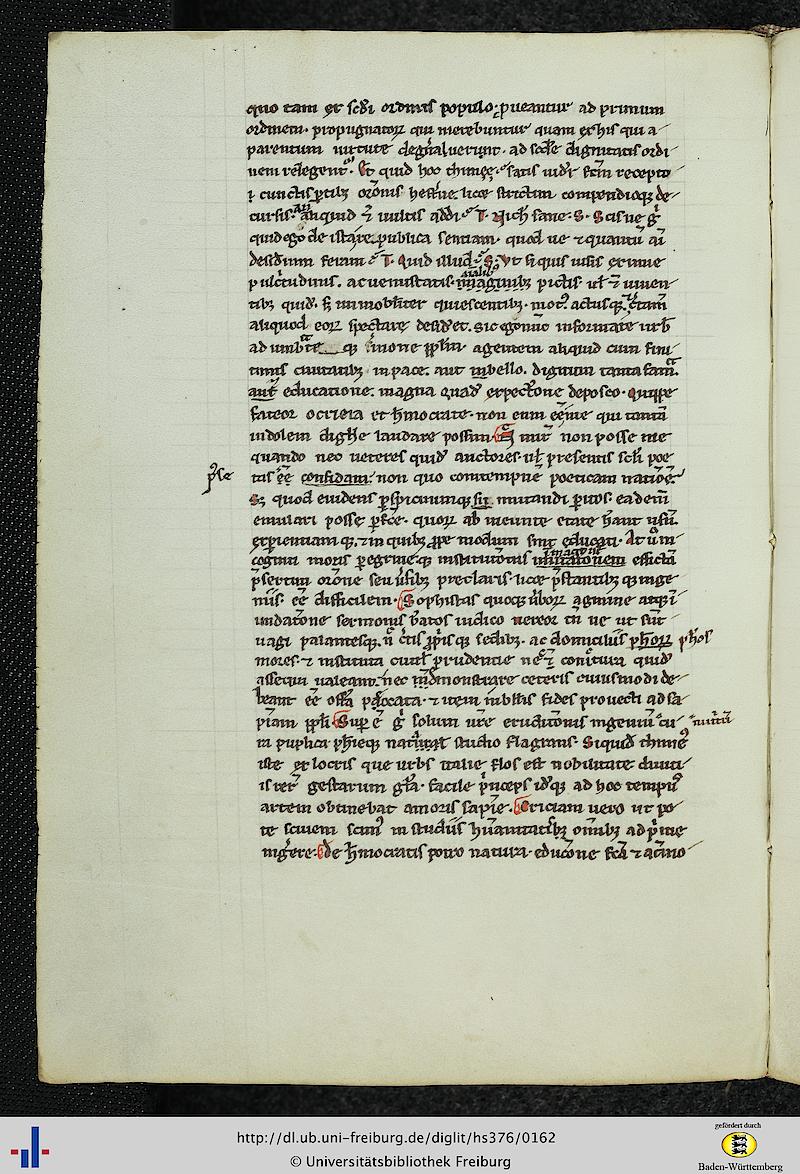 quo tam ex scd'i ordinis populo pueantur ad primum
ordinem. propugnatorꝝ qui merebuntur quam ex his qui a
parentum uirtute degn̄auerunt. ad scd'e dignitatis ordi
nem relegent᷑. Et quid hoc thimęe. satis uidet᷑ fcm̄ recepto
ī cunctis ꝑtibꝫ or̄onis hest̄ne. licꝫ strictim compendioqꝫ de
cursis. an aliquid ē uultis addi. T. Nich̄ sane. S. Scisne g̊
quid ego de istac re publica sentiam. quod ue ⁊ quantū āi
desiderium feram. T. Quid illud. S. Vt si quis uisis eximie
pulc̄tudinis. ac uenustatis. imaginibꝫ pictis. ul̄ ē uiuen
tibꝫ quid. sꝫ immobilit̄ quiescentibꝫ. motꝰ actusqꝫ
aliquod eorꝝ spectare desid'et. sic ego nunc informate urb̄
ad umbrate qꝫ s̄mone pp̄l'm agentem aliquid cum fini
timis ciuitatibꝫ in pace. aut in bello. dignum tanta fama.
aut educatione. magna quad' expectōne deposco. Quippe
fateor o critia et h̄mocrate. non eum ēē me qui tantā
indolem digne laudare possim. mir̄ non posse me
quando nec ueteres quid' auctores. ul̄ presentis scl'i poe
tas ēē confidam. non quo contempnē poeticam natiōe
Sꝫ quod euidens ꝑspicuumqꝫ sit imitandi ꝑitos. ea dem̄
emulari posse ꝑfce. quorꝝ ab ineunte etate h̄ant usū.
expientiam qꝫ. ⁊ in quibꝫ ꝓpe modum sint educati. At ū in
cogniti moris peg̊ne qꝫ institutōnis imitatōnem effictā
p̄sertim or̄one seu ūsibꝫ preclaris. licꝫ p̄stantibꝫ qꝫ inge
niis. ēē difficilem. Sophistas quoqꝫ ūborꝝ agmine atqꝫ ī
undatōne sermonis b̄atos iudico uereor tn̄ ne ut sūt
uagi palantesqꝫ. n̄ c̄tis ꝓpisqꝫ sedibꝫ. ac domiciliis ph̄orꝝ
mores. ⁊ instituta ciuil' prudentie coniectura quid'
assequi ualeant. nec demonstrare ceteris cuiusmodi de
beant ēē offa pacata. ⁊ item in bellis fides prouecti ad sa
piam pp̄l'i. Sup ē g̊ solum ure eruditōnis ingeniū cu
ra puplica ph̄ieqꝫ studio flagrans. Siquid' thimeꝰ
iste ex locris que urbs italie flos est nobilitate diuiti
is rerꝝ gestarum gl'a. facile p̄nceps idqꝫ ad hoc tempus
artem obtinebat amoris sapie. Criciam uero ut po
te ciuem scimꝰ in studiis hūanitatibꝫ om̄ibꝫ ad p̄me
uigere. de h̄mocratis porro natura. educōne
p̄se
ph̄os
nutrita
http://dl.ub.uni-freiburg.de/diglit/hs376/0162
© Universitätsbibliothek Freiburg
gefördert durch
Baden-Württemberg